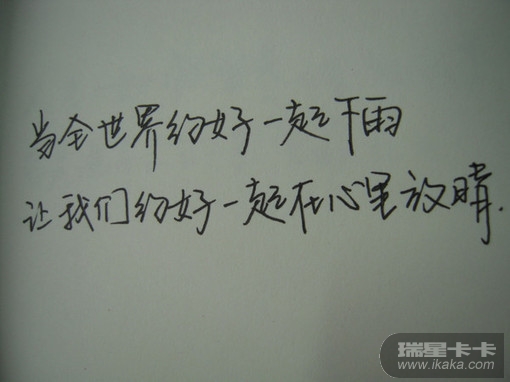 当全世界约好一起下雨
让我们约好一起在心里放晴.
瑞星卡卡
www.ikaka.com